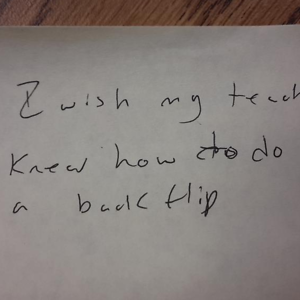 I wish my teach
Knew how to do
a back flip